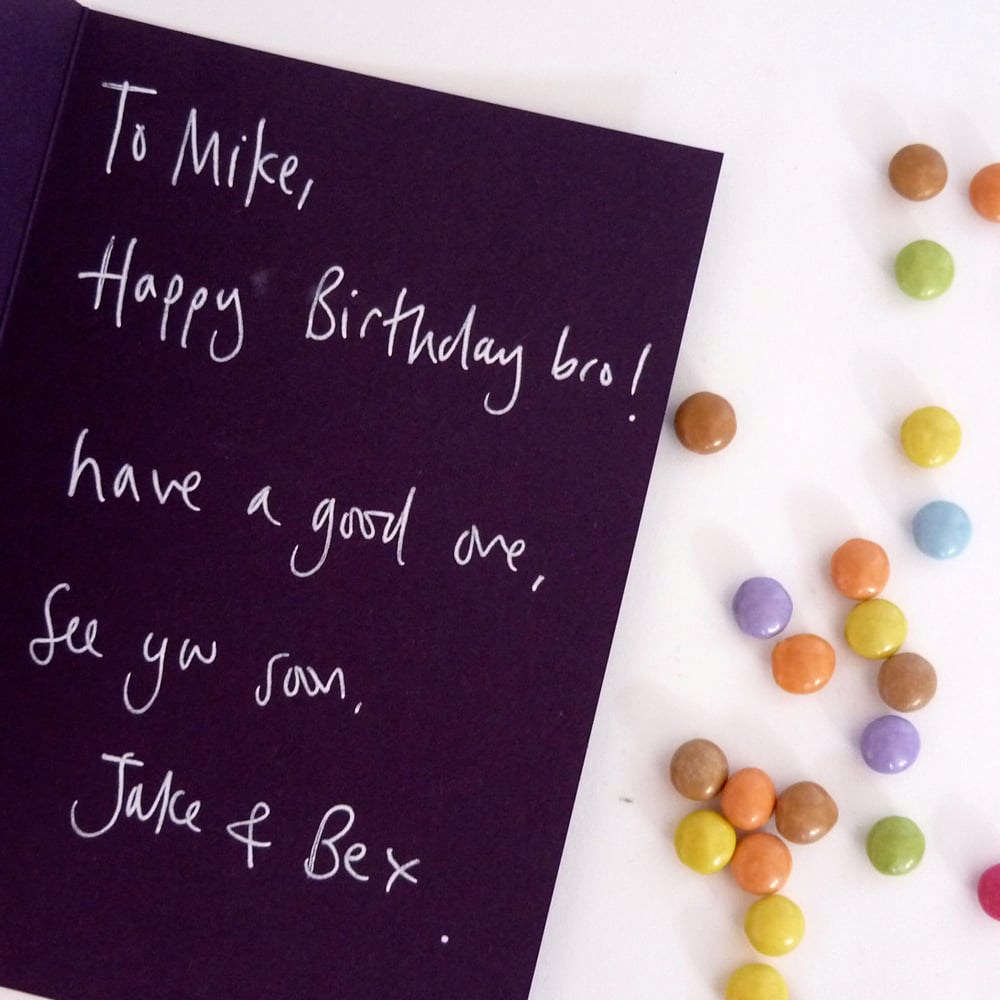 To Mike,
Happy Birthday bro!
have a good one,
See you soon,
Jake & Bex